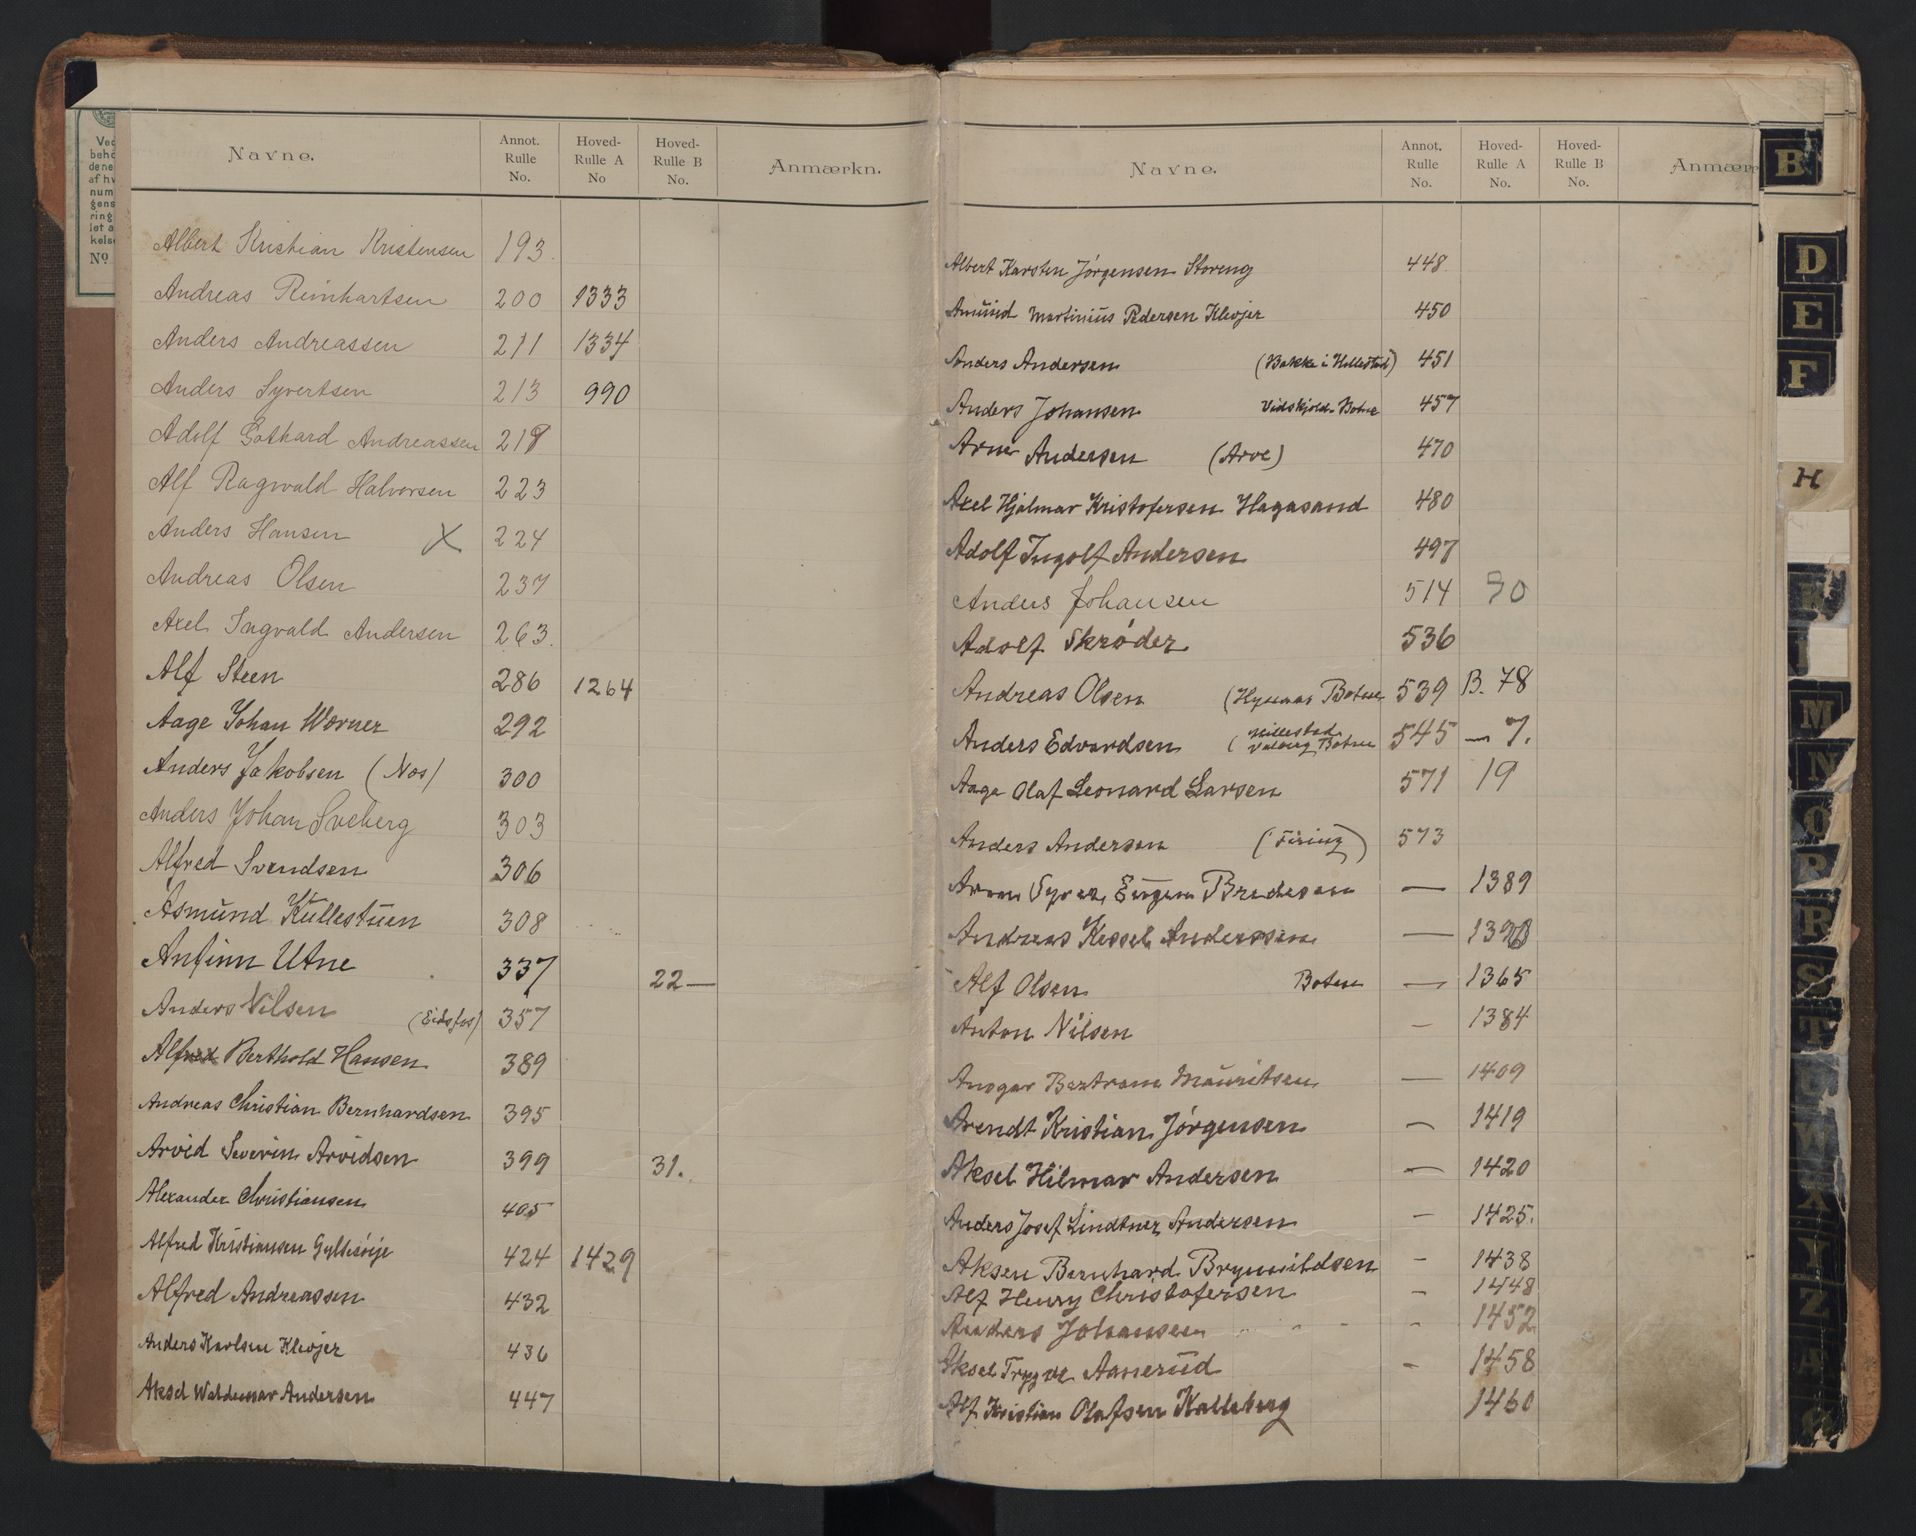 Navne. Annot. Rulle No. Hoved-Rulle A No Hoved-Rulle B No. Anmærkn.
Albert Kristian Kristensen 193.
Andreas Reinhartsen 200 1333
Anders Andreassen 211 1334
Anders Syvertsen 213 990
Adolf Gothard Andreassen
Alf Ragwald Halvorsen 223
Anders Hansen X 224
Andreas Olsen 237
Axel Ingvald Andersen 263.
Alf Steen 286 1264
Aage Johan Wærner 292
Anders Jakobsen (Næs) 300
Anders Johan Sveberg 303
Alfred Svendsen 306
Asmund Kullestuen 308
Anfinn Utne 337 22 —
Anders Nilsen (Eidsfos) 357
Alf Berthold Hansen 389
Andreas Christian Bernhardsen 395
Arvid Severin Arvidsen 399 31.
Alexander Christiansen 405
Alfred Kristiansen 424 1429
Alfred Andreassen 432
Anders Karlsen Klevjer 436
Aksel Waldemar Andersen 447
Navne. Annot. Rulle No. Hoved-Rulle A No. Hoved-Rulle B No. Anmær
Albert Karsten Jørgensen Storeng 448
Amund Martinius Pedersen Klevjer 450
Anders Andersen (Bakke i Hillestad) 451
Anders Johansen Vidskjold Botne 457
Arne Andersen (Arve) 470
Axel Hjalmar Kristofersen Hagasand 480
Adolf Ingolf Andersen 497
Anders Johansen 514 70
Adolf Skrøder 536
Andreas Olsen Botne 539 B. 78
Anders Edvardsen (Hillestad
Botne 545 — 7.
Aage Olaf Leonard Larsen 571 19
Anders Andersen (Firing) 573
Eugen Bredesen — 1389
Andreas Kessel Anderssen —
Alf Olsen Botne — 1365
Anton Nilsen — 1384
Ansgar Bertram Mauritsen — 1409
Arendt Kristian Jørgensen — 1419
Aksel Hilmar Andersen — 1420
Anders Josef Lindtner Andersen — 1425.
Aksen Bernhard Brynildsen — 1438
Alf Henry Christofersen — 1448
Anders Johansen — 1452
Aksel Trygve Aanerud — 1458
Alf Kristian Olafsen Kalleberg 1460
B
D
E
F
H
K
M
N
O
P
R
S
T